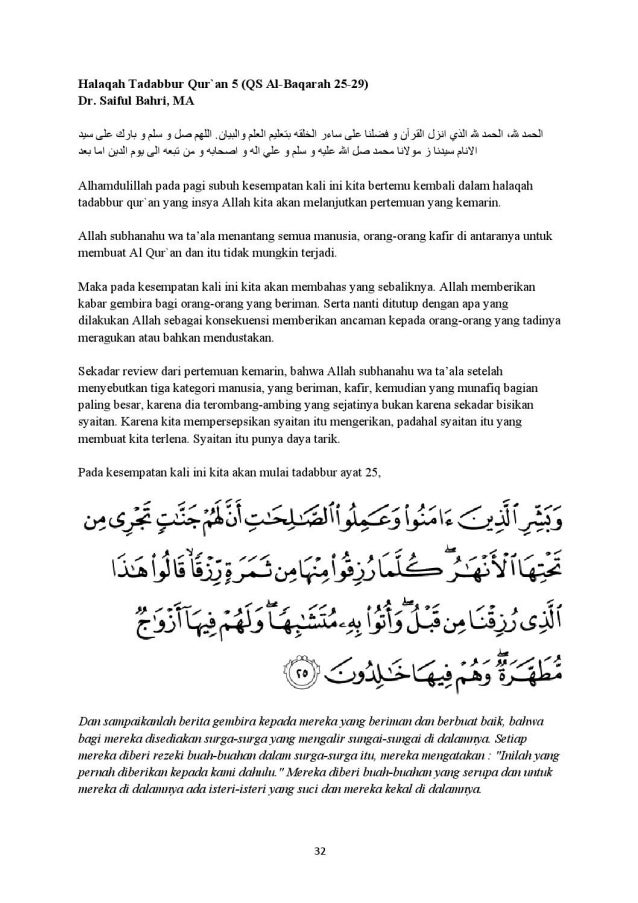 Halaqah Tadabbur Qur`an 5 (QS Al-Baqarah 25-29)
Dr. Saiful Bahri, MA
الحمد لله، الحمد لله الذي انزل القرآن و فضلنا على ساءر الخلقه بتعليم العلم والبيان. اللهم صل و سلم و بارك على سيد
الانام سيدنا ز مولانا محمد صل الله عليه و سلم و علي اله و اصحابه و من تبعه الى يوم الدين اما بعد
Alhamdulillah pada pagi subuh kesempatan kali ini kita bertemu kembali dalam halaqah
tadabbur qur`an yang insya Allah kita akan melanjutkan pertemuan yang kemarin.
Allah subhanahu wa ta’ala menantang semua manusia, orang-orang kafir di antaranya untuk
membuat Al Qur`an dan itu tidak mungkin terjadi.
Maka pada kesempatan kali ini kita akan membahas yang sebaliknya. Allah memberikan
kabar gembira bagi orang-orang yang beriman. Serta nanti ditutup dengan apa yang
dilakukan Allah sebagai konsekuensi memberikan ancaman kepada orang-orang yang tadinya
meragukan atau bahkan mendustakan.
Sekadar review dari pertemuan kemarin, bahwa Allah subhanahu wa ta’ala setelah
menyebutkan tiga kategori manusia, yang beriman, kafir, kemudian yang munafiq bagian
paling besar, karena dia terombang-ambing yang sejatinya bukan karena sekadar bisikan
syaitan. Karena kita mempersepsikan syaitan itu mengerikan, padahal syaitan itu yang
membuat kita terlena. Syaitan itu punya daya tarik.
Pada kesempatan kali ini kita akan mulai tadabbur ayat 25,
وَبَشِّرِ ٱلَّذِينَ ءَامَنُوا۟ وَعَمِلُوا۟ ٱلصَّـٰلِحَـٰتِ أَنَّ لَهُمْ جَنَّـٰتٍ تَجْرِى مِن
تَحْتِهَا ٱلْأَنْهَـٰرُ ۖ كُلَّمَا رُزِقُوا۟ مِنْهَا مِن ثَمَرَةٍ رِّزْقًا ۙ قَالُوا۟ هَـٰذَا
ٱلَّذِى رُزِقْنَا مِن قَبْلُ ۖ وَأُتُوا۟ بِهِۦ مُتَشَـٰبِهًا ۖ وَلَهُمْ فِيهَآ أَزْوَٰجٌ
مُّطَهَّرَةٌ ۖ وَهُمْ فِيهَا خَـٰلِدُونَ ٢٥
Dan sampaikanlah berita gembira kepada mereka yang beriman dan berbuat baik, bahwa
bagi mereka disediakan surga-surga yang mengalir sungai-sungai di dalamnya. Setiap
mereka diberi rezeki buah-buahan dalam surga-surga itu, mereka mengatakan : "Inilah yang
pernah diberikan kepada kami dahulu." Mereka diberi buah-buahan yang serupa dan untuk
mereka di dalamnya ada isteri-isteri yang suci dan mereka kekal di dalamnya.
32